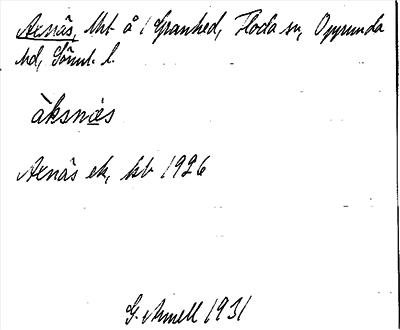 Axnäs, lht å / Granhed, Floda sn, Oppunda
hd, Sörml. l.
àksnæs
Axnäs ek, kb 1926
G. Armell 1931